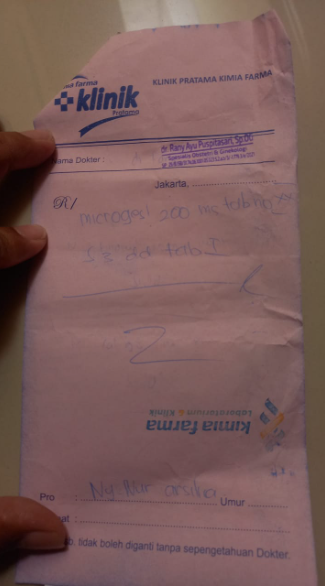 farma
klinik
Pratama
KLINIK PRATAMA KIMIA FARMA
dr Rany Ayu Puspitasari, Sp.OG
ama Dokter :
Jakarta,
R/
microgest 200 mg
S 3 dd tab I
kimia farma
Laboratorium & Klinik
Pro : Ny. Nur
Umur
at :
b. tidak boleh diganti tanpa sepengetahuan Dokter.